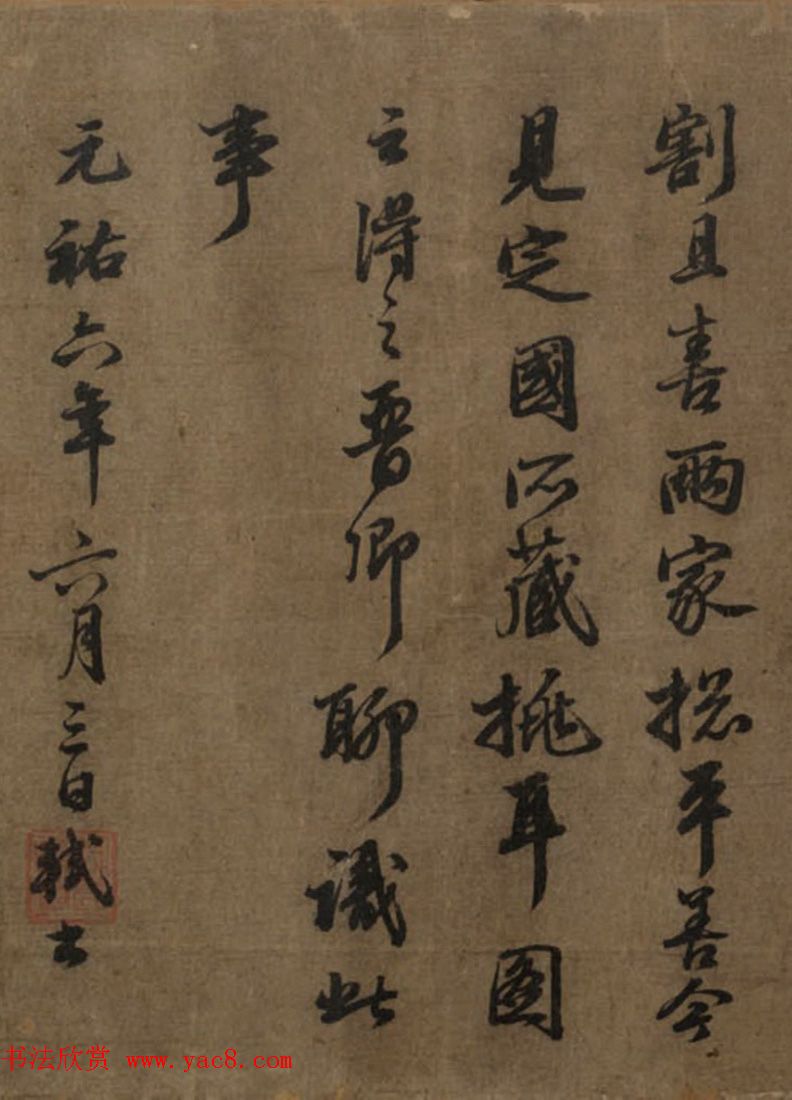 割且喜兩家揔平善今
見定國所藏挑耳圖
云得之晉卿聊識此
事
元祐六年六月三日軾書
书法欣赏 www.yac8.com